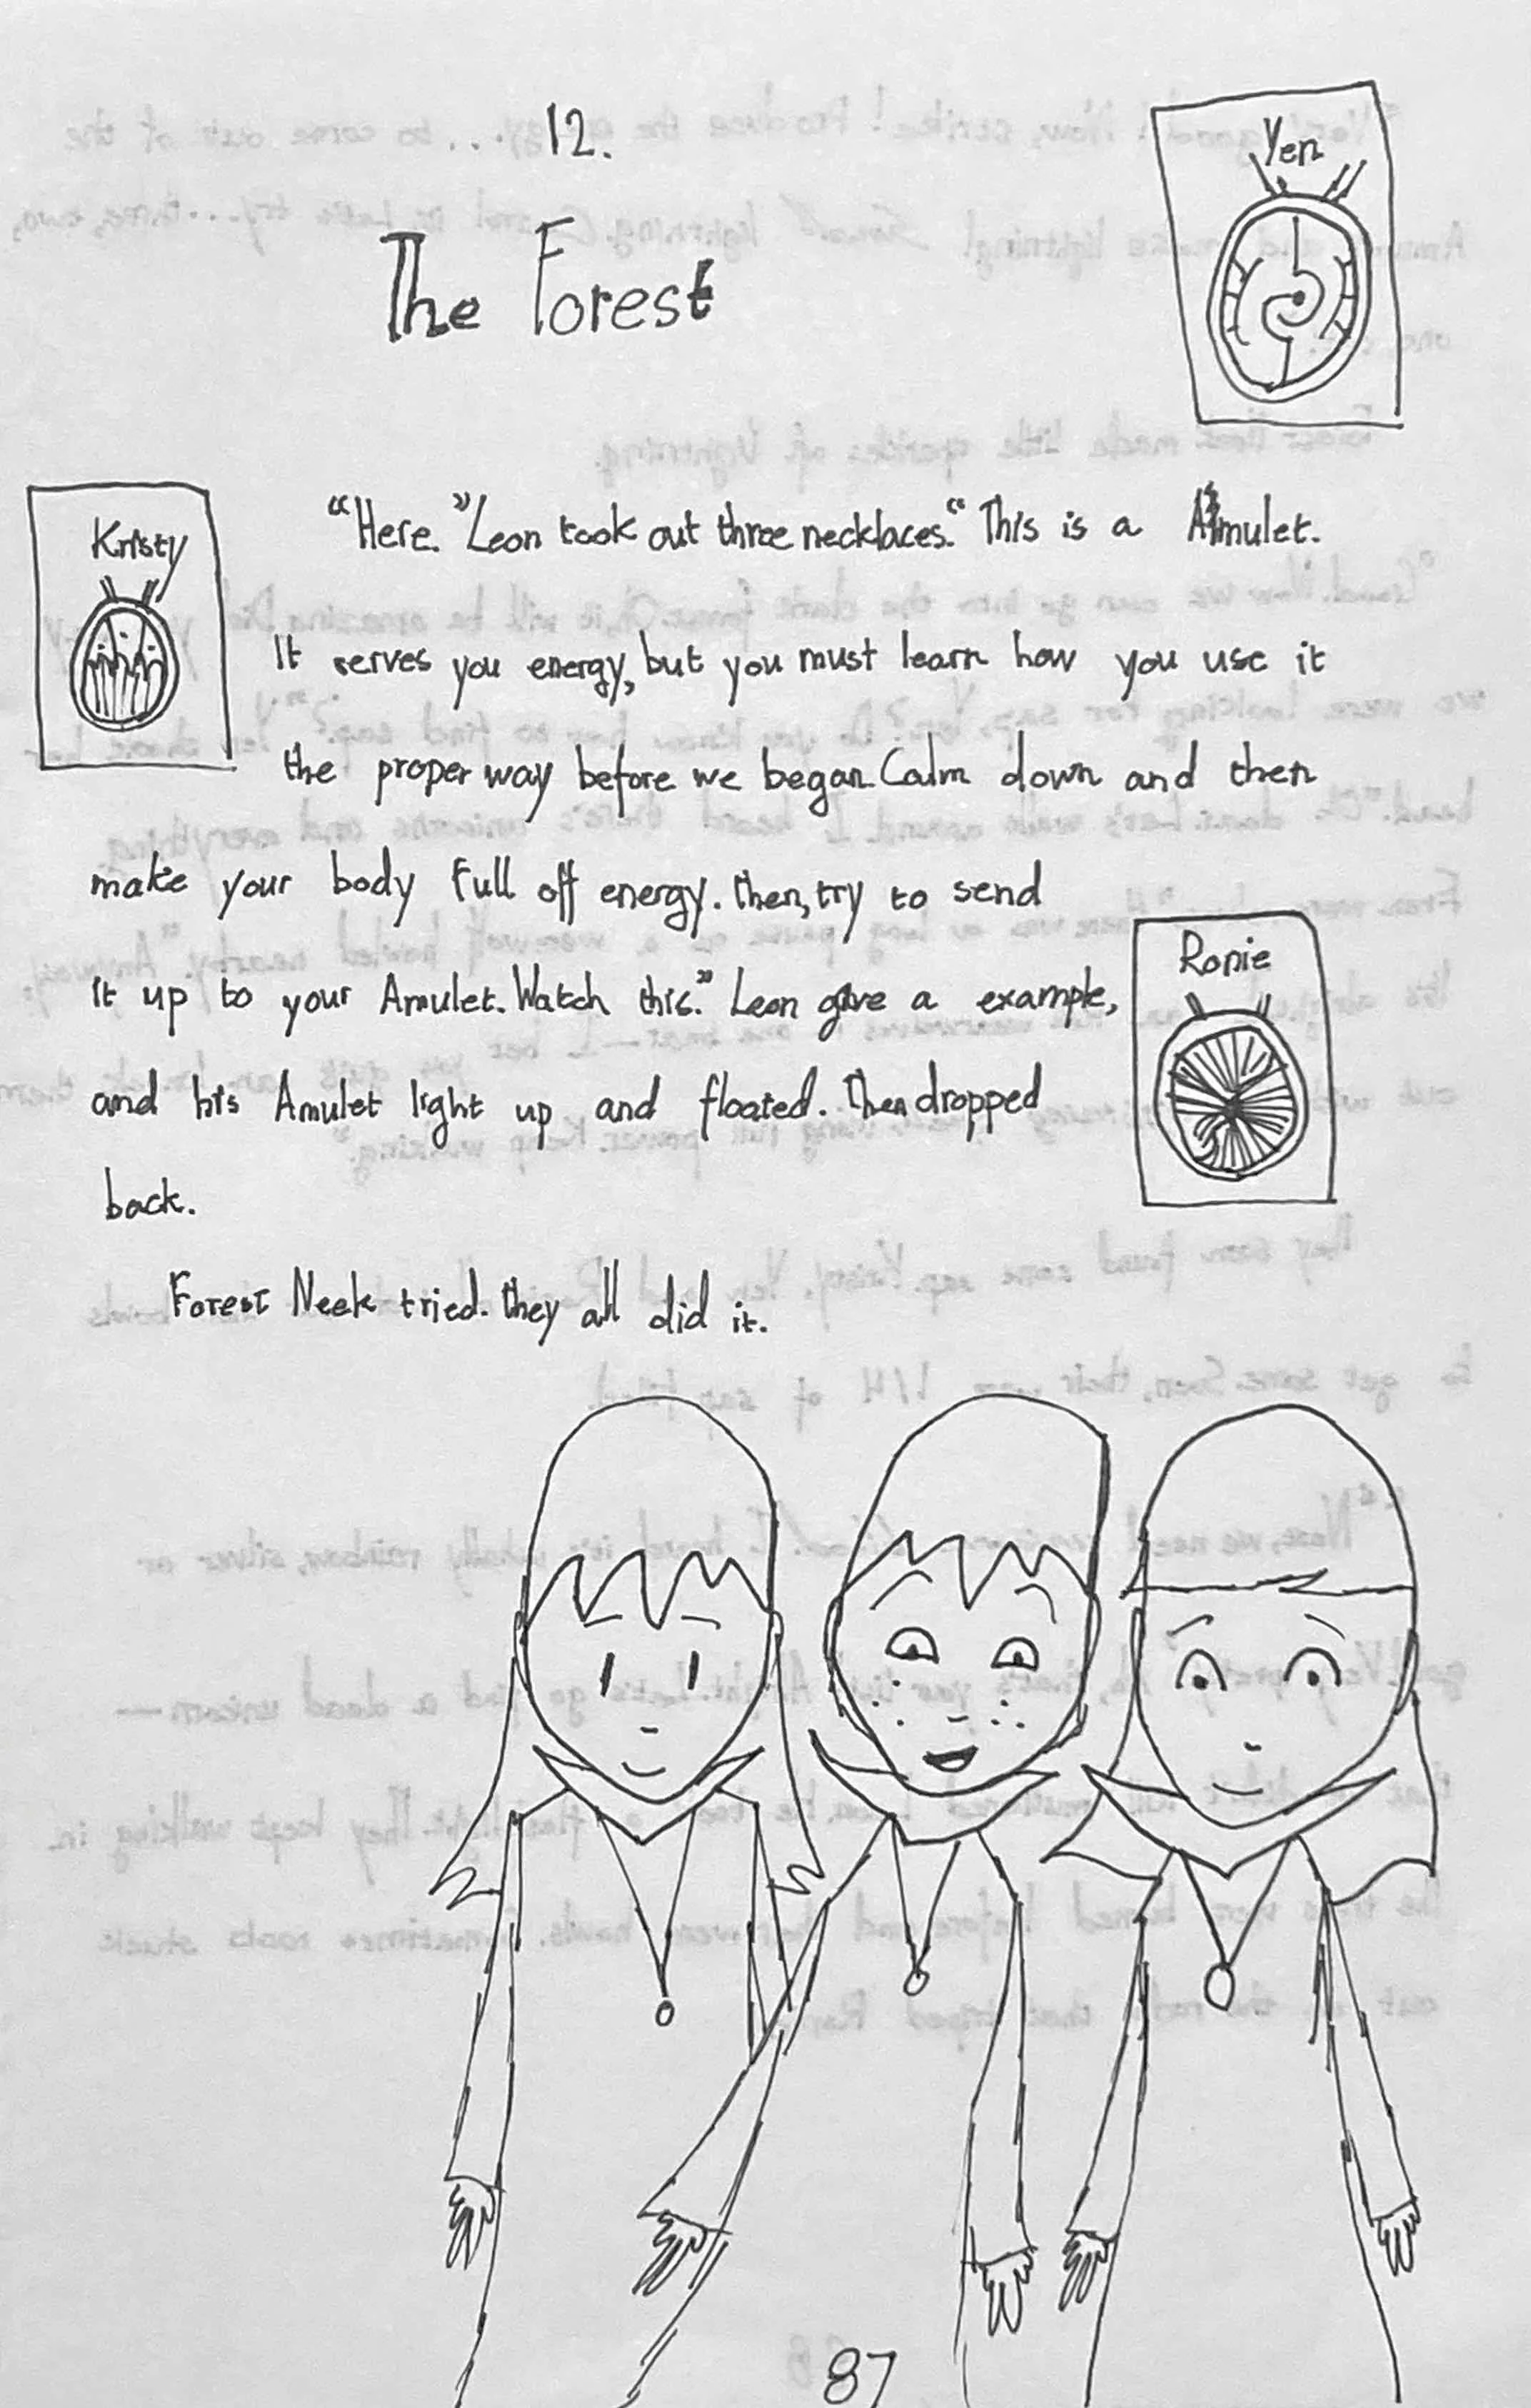 12.
Yen
The Forest
Kristy
"Here." Leon took out three necklaces. "This is a Amulet.
It serves you energy, but you must learn how you use it
the proper way before we began. Calm down and then
make your body full off energy. Then, try to send
it up to your Amulet. Watch this." Leon gave a example,
Ronie
and his Amulet light up and floated. Then dropped
back.
Forest Neek tried. They all did it.
87